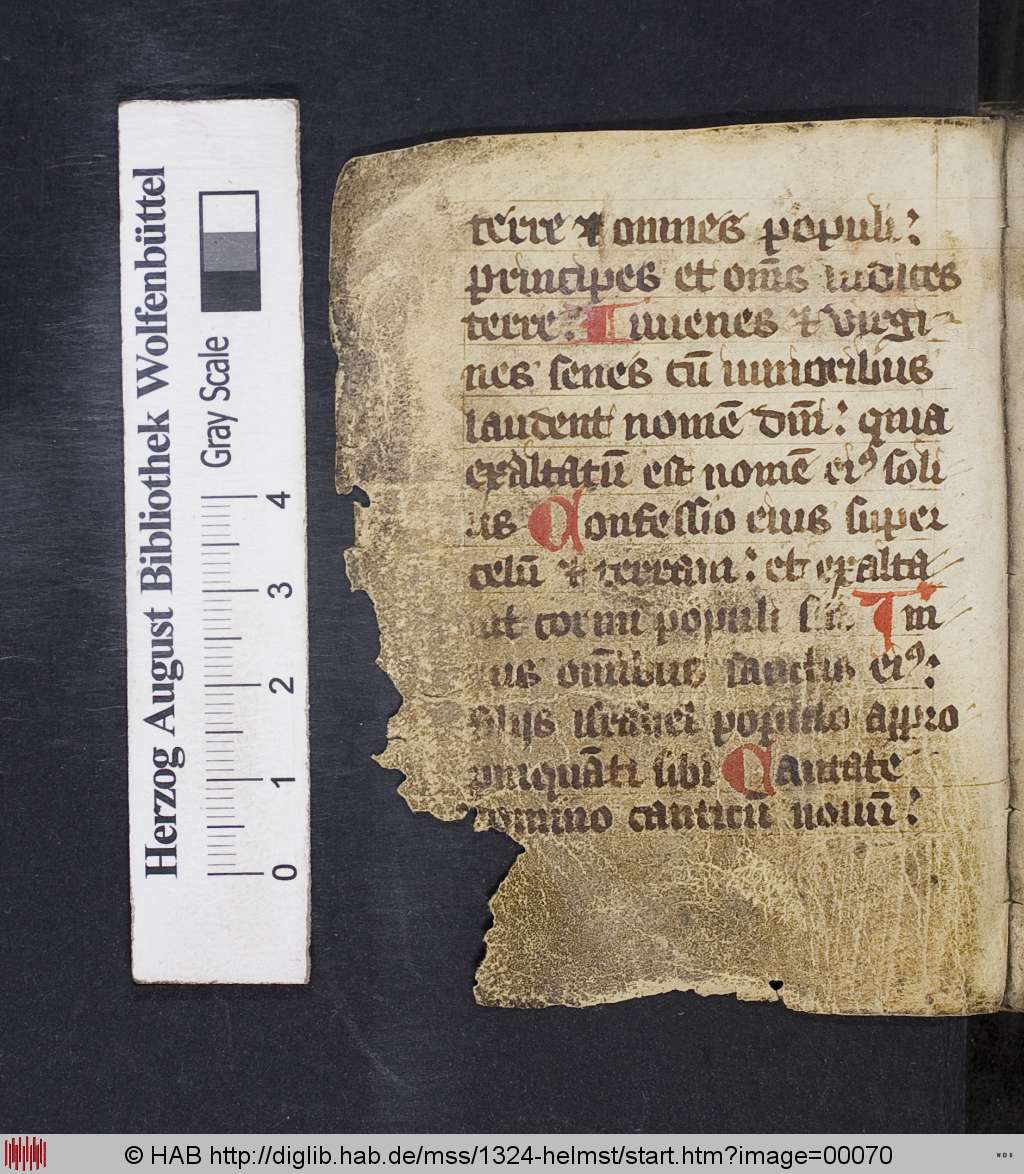 Herzog August Bibliothek Wolfenbüttel
Gray Scale
0 1 2 3 4
terre ⁊ omnes populi:
principes et om̄s iudices
terre: Iuuenes ⁊ virgi-
nes senes cū iunioribus
laudent nomē dn̄i: quia
exaltatū est nomē eiꝰ soli
us Confessio eius super
celū ⁊ terram: et exalta
uit cornu populi sui. Im
nus om̄ibus sanctis eiꝰ:
filijs israhel populo appro
pinquāti sibi Cantate
domino canticū nouū:
© HAB http://diglib.hab.de/mss/1324-helmst/start.htm?image=00070